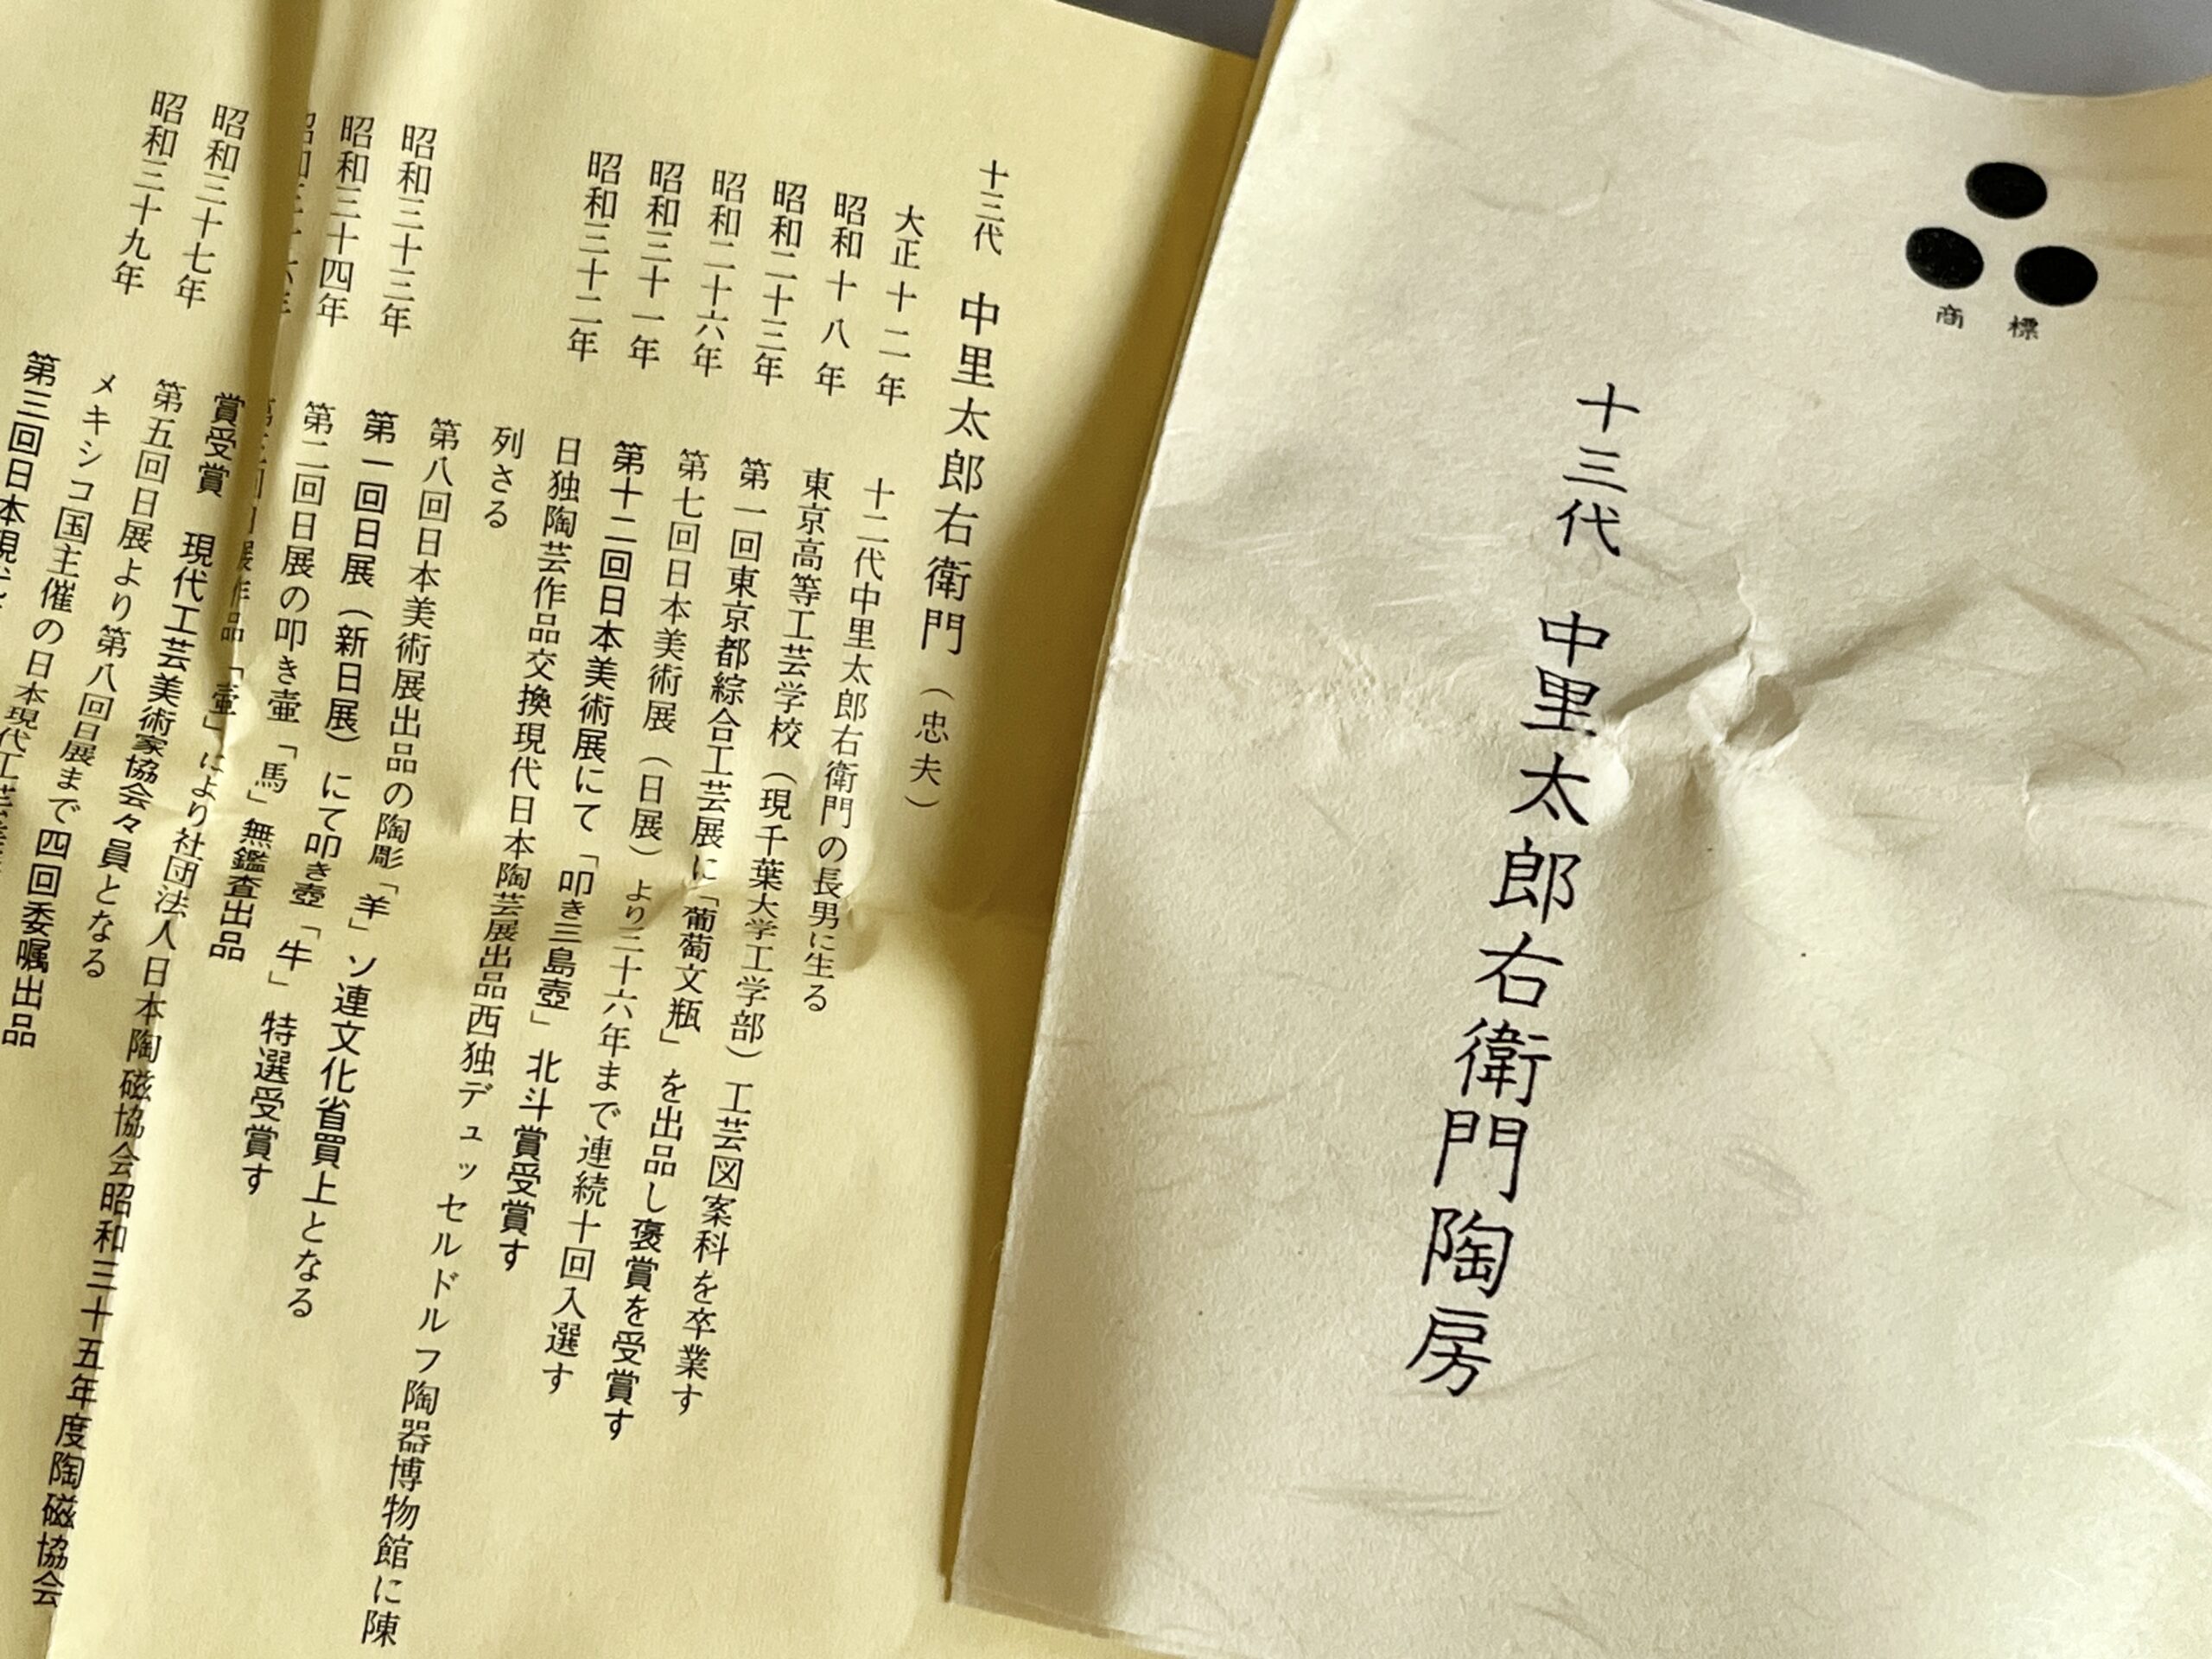 商標
十三代 中里太郎右衛門陶房
十三代 中里太郎右衛門（忠夫）
大正十二年 十二代中里太郎右衛門の長男に生る
昭和十八年 東京高等工芸学校（現千葉大学工学部）工芸図案科を卒業す
昭和二十三年 第一回東京都綜合工芸展に「葡萄文瓶」を出品し褒賞を受賞す
昭和二十六年 第七回日本美術展（日展）より三十六年まで連続十回入選す
昭和三十一年 第十二回日本美術展にて「叩き三島壺」北斗賞受賞す
昭和三十二年 日独陶芸作品交換現代日本陶芸展出品西独デュッセルドルフ陶器博物館に陳
列さる
第八回日本美術展出品の陶彫「羊」ソ連文化省買上となる
昭和三十三年 第一回日展（新日展）にて叩き壺「牛」特選受賞す
昭和三十四年 第二回日展の叩き壷「馬」無鑑査出品
昭和三十六年 第三回日展作品「壷」により社団法人日本陶磁協会昭和三十五年度陶磁協会
賞受賞 現代工芸美術家協会々員となる
昭和三十七年 第五回日展より第八回日展まで四回委嘱出品
昭和三十九年 メキシコ国主催の日本現代工芸
第三回日本現代